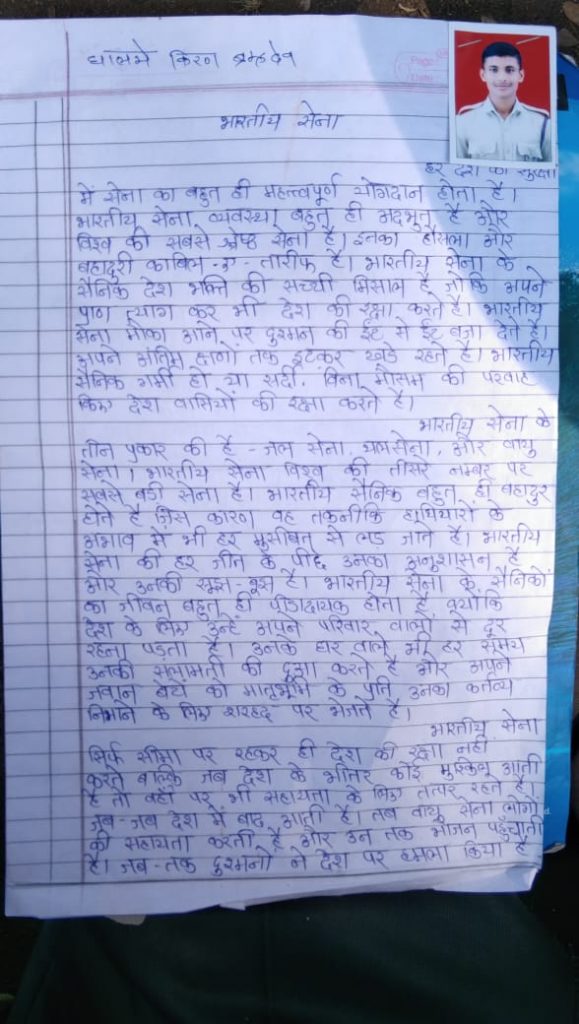 किरण ब्रम्हदेव
Page
Date
भारतीय सेना
हर देश की सुरक्षा
में सेना का बहुत ही महत्त्वपूर्ण योगदान होता है।
भारतीय सेना व्यवस्था बहुत ही अदभुत है और
विश्व की सबसे श्रेष्ठ सेना है। इनका हौसला और
बहादुरी काबिल-ए-तारीफ है। भारतीय सेना के
सैनिक देश भक्ति की सच्ची मिसाल है जोकि अपने
प्राण त्याग कर भी देश की रक्षा करते है। भारतीय
सेना मौका आने पर दुश्मन की ईट से ईट बजा देते है।
अपने अंतिम क्षणों तक डटकर खडे रहते है। भारतीय
सैनिक गर्मी हो या सर्दी, बिना मौसम की परवाह
किए देश वासियों की रक्षा करते है।
भारतीय सेना के
तीन प्रकार की है - जल सेना, थलसेना, और वायु
सेना। भारतीय सेना विश्व की तीसरे नम्बर पर
सबसे बडी सेना है। भारतीय सैनिक बहुत ही बहादुर
होते है जिस कारण वह तकनीकि हथियारों के
अभाव में भी हर मुसीबत से भिड जाते है। भारतीय
सेना की हर जीत के पीछे उनका अनुशासन है
और उनकी सूझ-बूझ है। भारतीय सेना के सैनिकों
का जीवन बहुत ही पीडादायक होता है क्योंकि
देश के लिए उन्हें अपने परिवार वालों से दूर
रहना पड़ता है। उनके घर वाले भी हर समय
उनकी सलामती की दुआ करते है और अपने
जवान बेटे को मातृभूमि के प्रति उनका कर्तव्य
निभाने के लिए शरहद पर भेजते है।
भारतीय सेना
सिर्फ सीमा पर रहकर ही देश की रक्षा नही
करते बाल्कि जब देश के भीतर कोई मुश्किल आती
है तो वहाँ पर भी सहायता के लिए तत्पर रहते है।
जब-जब देश में बाढ आती है। तब वायु सेना लोगो
की सहायता करती है और उन तक भोजन पहुँचाती
है। जब-तक दुश्मनो ने देश पर हमला किया है